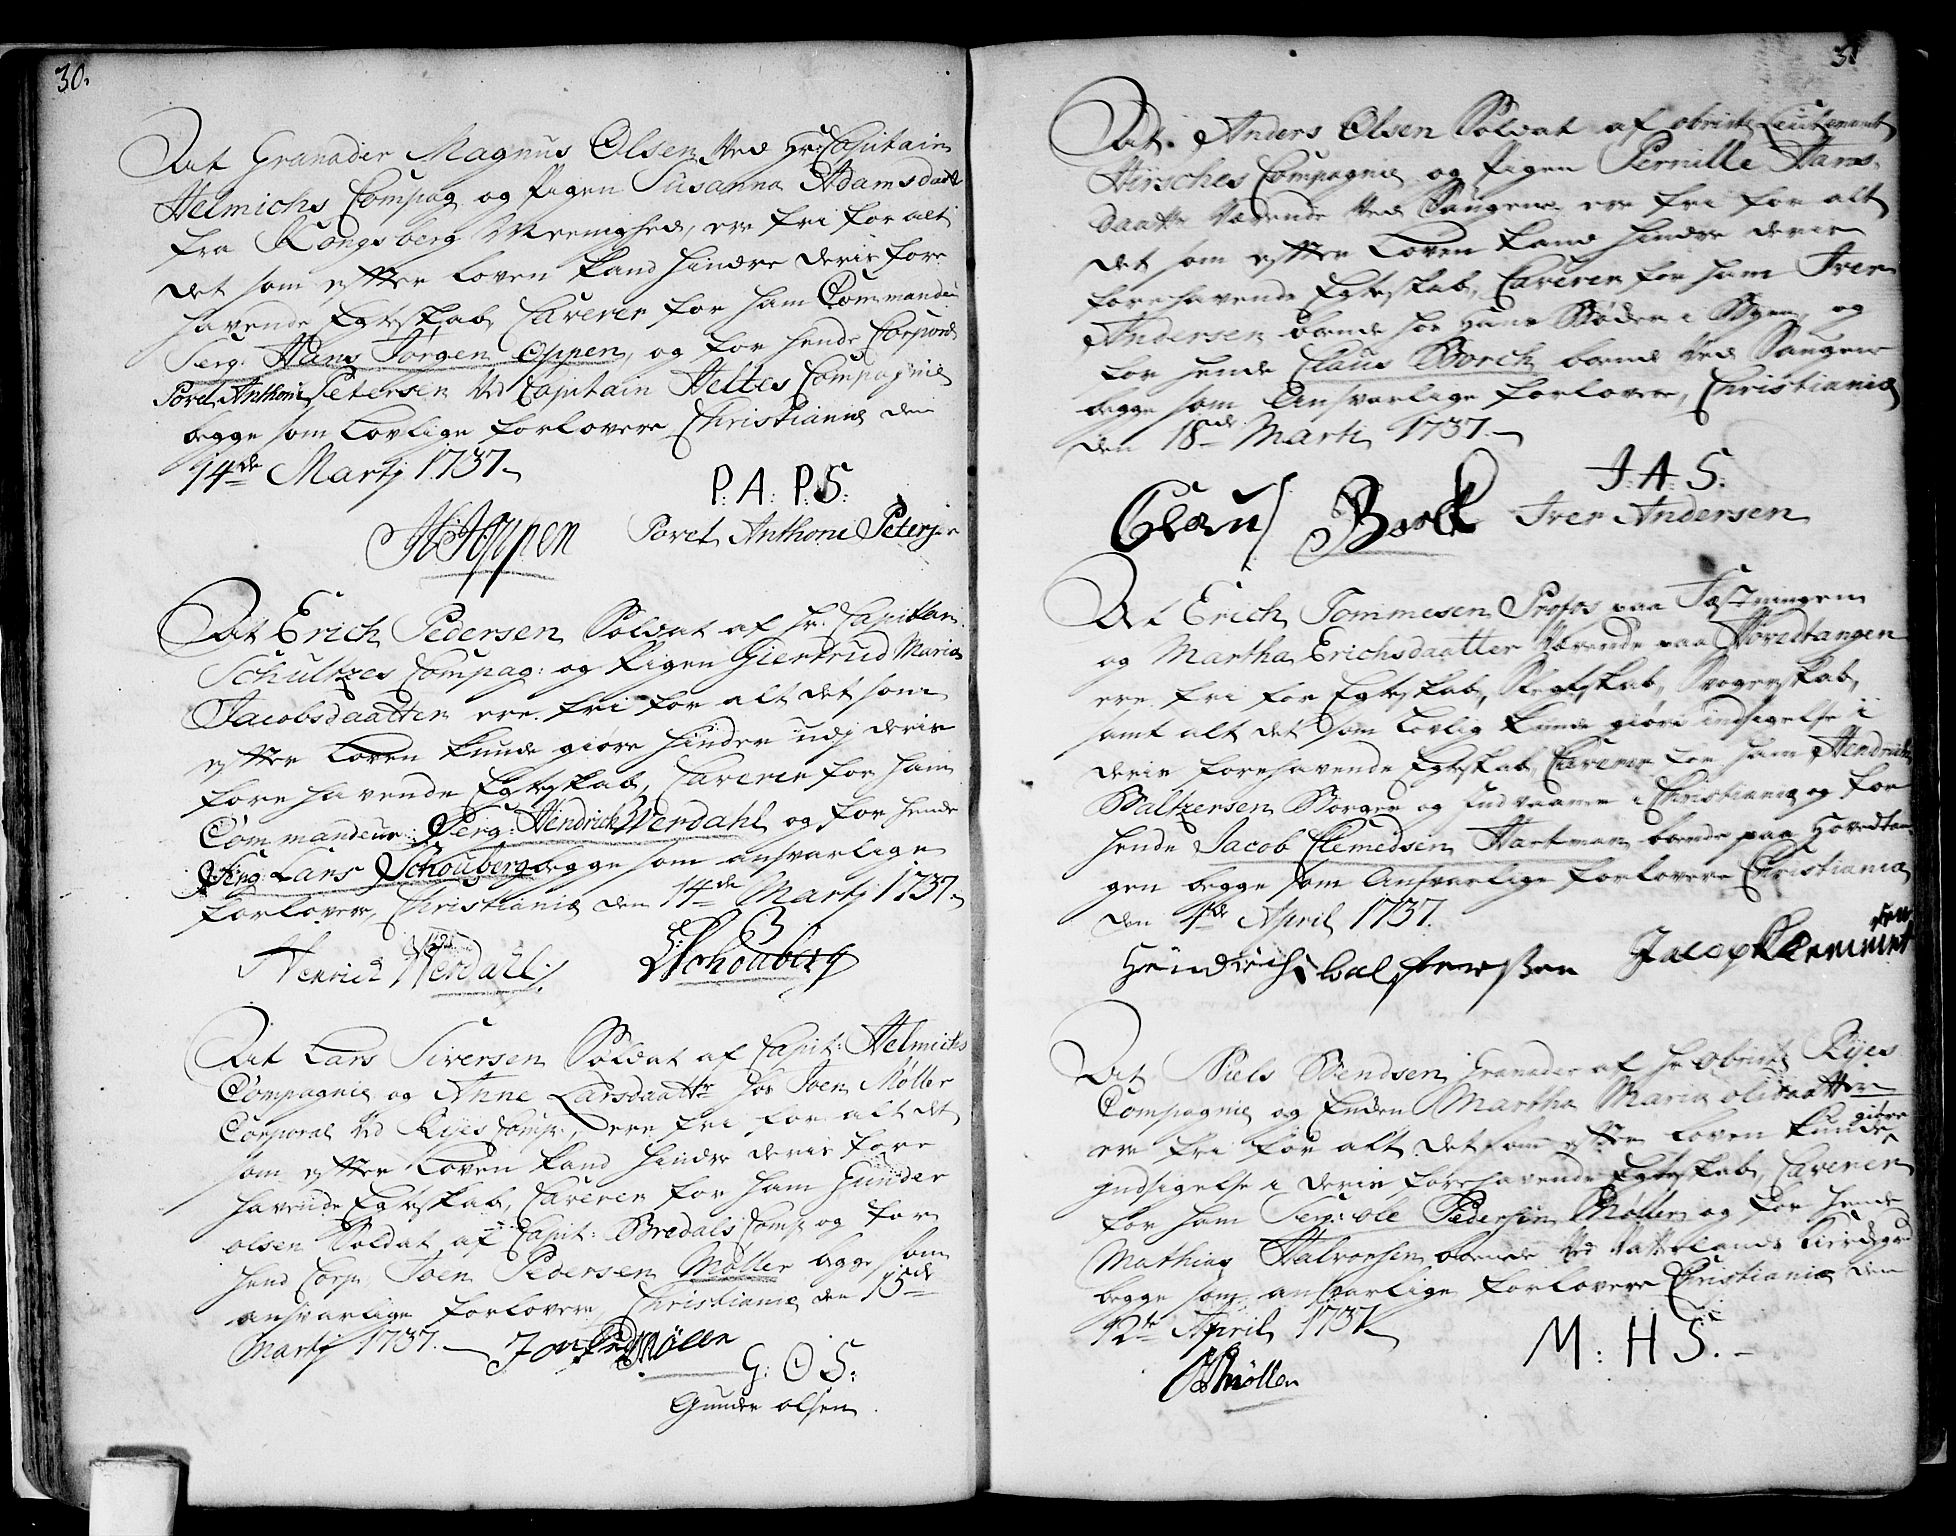 30.
At Granader Magnus Olsen Ved Hr Capitain
Helmichs Compag og Pigen Susanna Adamsdaatt
fra Kongsberg Meenighed, ere fri for alt
det som efter Loven kand hindre deris fore
havende Egteskab, Caverer for ham Commandeur
Serg: Hans Jørgen Oppen, og for hende Corporal
Povel Anthoni Petersen Ved Capitain Heltes Compagnie
begge som Lovlige forlovere Christiania den
14de Martj 1737.
P: A: P: S:
HJOppen Povel Anthoni Petersen
At Erich Pedersen Soldat af Hr: Capitain
Schultzes Compag: og Pigen Giertrud Maria
Jacobsdaatter ere fri for alt det som
efter Loven kunde giøre hinder udj deris
forehavende Egteskab, Caverer for ham
Commandeur: Serg: Hendrich Werdahl og for hende
Serg: Lars Schouberg begge som ansvarlige
forlovere, Christiania den 14de Martj 1737.
Henrich Werdall LSchouberg
At Lars Siversen Soldat af Capit: Helmichs
Compagnie og Anne Larsdaatter hos Joen Møller
Corporal Ved Rÿes Comp:, ere fri for alt det
som efter Loven kand hindre deris fore
havende Egteskab, Caverer for ham Gunder
olsen Soldat af Capit: Bredals Comp og for
hend Corp: Joen Pedersen Møller begge som
ansvarlige forlovere, Christiania den 15de
Martj 1737. Jon Peds Møller
G: O S:
Gunder olsen
31
At Anders Olsen Soldat af obriste Leutenant
Hirsches Compagnie og Pigen Pernille Hans-
daatter Værende Ved Saugene ere fri for alt
det som efter Loven kand hindre deris
forehavende Egteskab, Caverer for ham Iver
Andersen boende hos Hans Bøder i Byen, og
for hende Claus Borch boend Ved Saugene
begge som Ansvarlige forlovere, Christiania
den 18de Martj 1737.
J: A: S:
Claus Bork Iver Andersen
At Erich Tommesen Profos paa Fæstningen
og Martha Erichsdaatter Værende paa Hovedtangen
ere fri for Egteskab, Slegtskab, Svogerskab,
samt alt det som Lovlig kunde giøre indsigelse i
deris forehavende Egteskab, Caverer for ham Hendrich
Baltzersen Borger og Indvaaner i Christiania og for
hende Jacob Clemedsen Hartman boende paa Hovedtan
gen begge som Ansvarlige forlovere Christiania
den 4de April 1737.
Hendrich balszersen Jacop Clemmet
sen
At Niels Svendsen Granader af Hr Obriste Rÿes
Compagnie og Enden Martha Maria olsdaatter
ere fri for alt det som efter Loven kunde giøre
jndsigelse i deris forehavende Egteskab, Caverer
for ham Serg: ole Pedersen Møller og for hende
Mathias Halvorsen boende Ved Vatterlands Kirkegr
begge som ansvarlige forlovere Christiania den
12te April 1737.
M: H S.
OPMøller